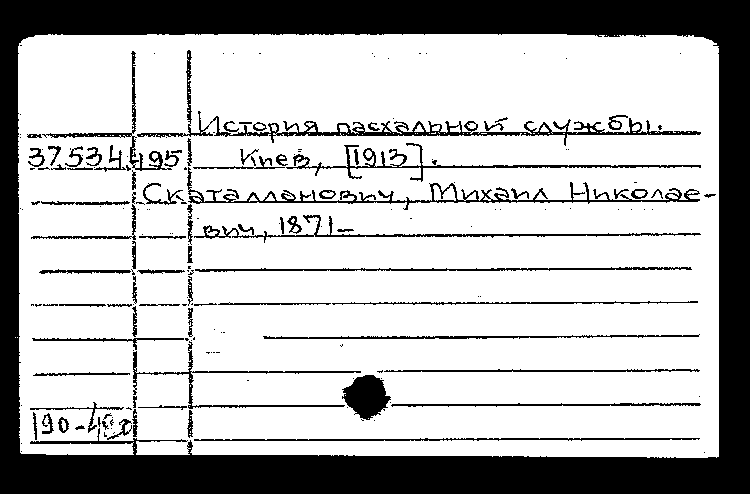 История пасхальной службы.
37.534.495 Киев, [1913].
Скаталланович, Михаил Николае-
вич, 1871-